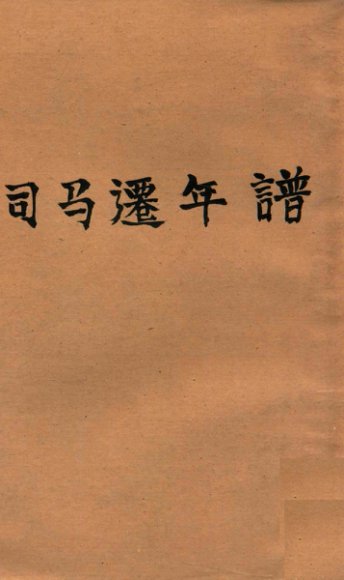 司马遷年譜